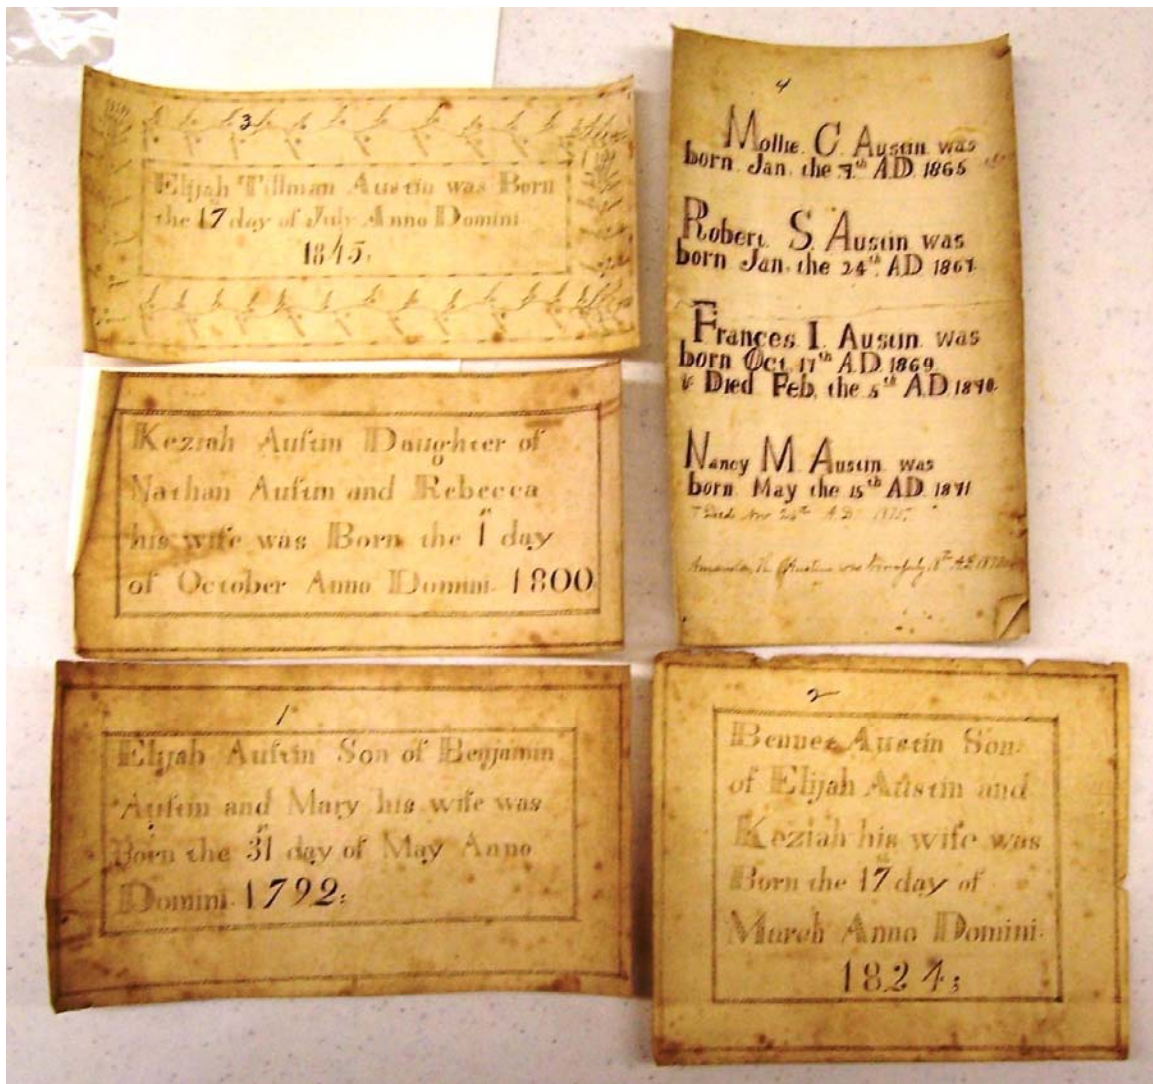 3
Elijah Tillman Austin was Born
the 17 day of July Anno Domini
1845.
Keziah Auſtin Daughter of
Nathan Auſtin and Rebecca
his wife was Born the 1 day
of October Anno Domini. 1800
1
Elijah Auſtin Son of Benjamin
Auſtin and Mary his wife was
Born the 31 day of May Anno
Domini. 1792;
4
Mollie. C. Austin. was
born. Jan. the 7th A.D. 1865
Robert. S. Austin. was
born. Jan. the 24th A.D. 1867.
Frances. I. Austin. was
born Oct. 17th A.D. 1869.
& Died Feb. the 5th A.D. 1870.
Nancy M. Austin. was
born. May the 15th A.D. 1871
Died Nov 24th A.D. 1875.
Austin was born July 8th A.D.
2
Bennet Austin Son
of Elijah Austin and
Keziah his wife was
Born the 17th day of
March Anno Domini.
1824;